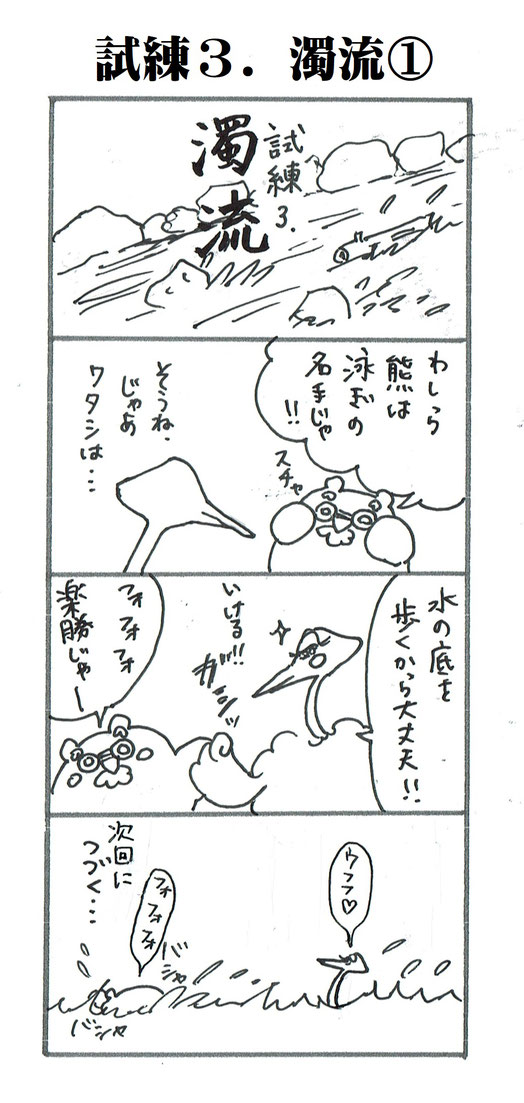 試練３．濁流①
試練3.
濁流
わしら
熊は
泳ぎの
名手じゃ
!!
スチャ
そうね、
じゃあ
ワタシは…
水の底を
歩くから大丈夫!!
いける!!
ガシッ
フォフォフォ
楽勝じゃー
ウフフ♡
バシャ
フォフォフォ
バシャ
次回に
つづく…